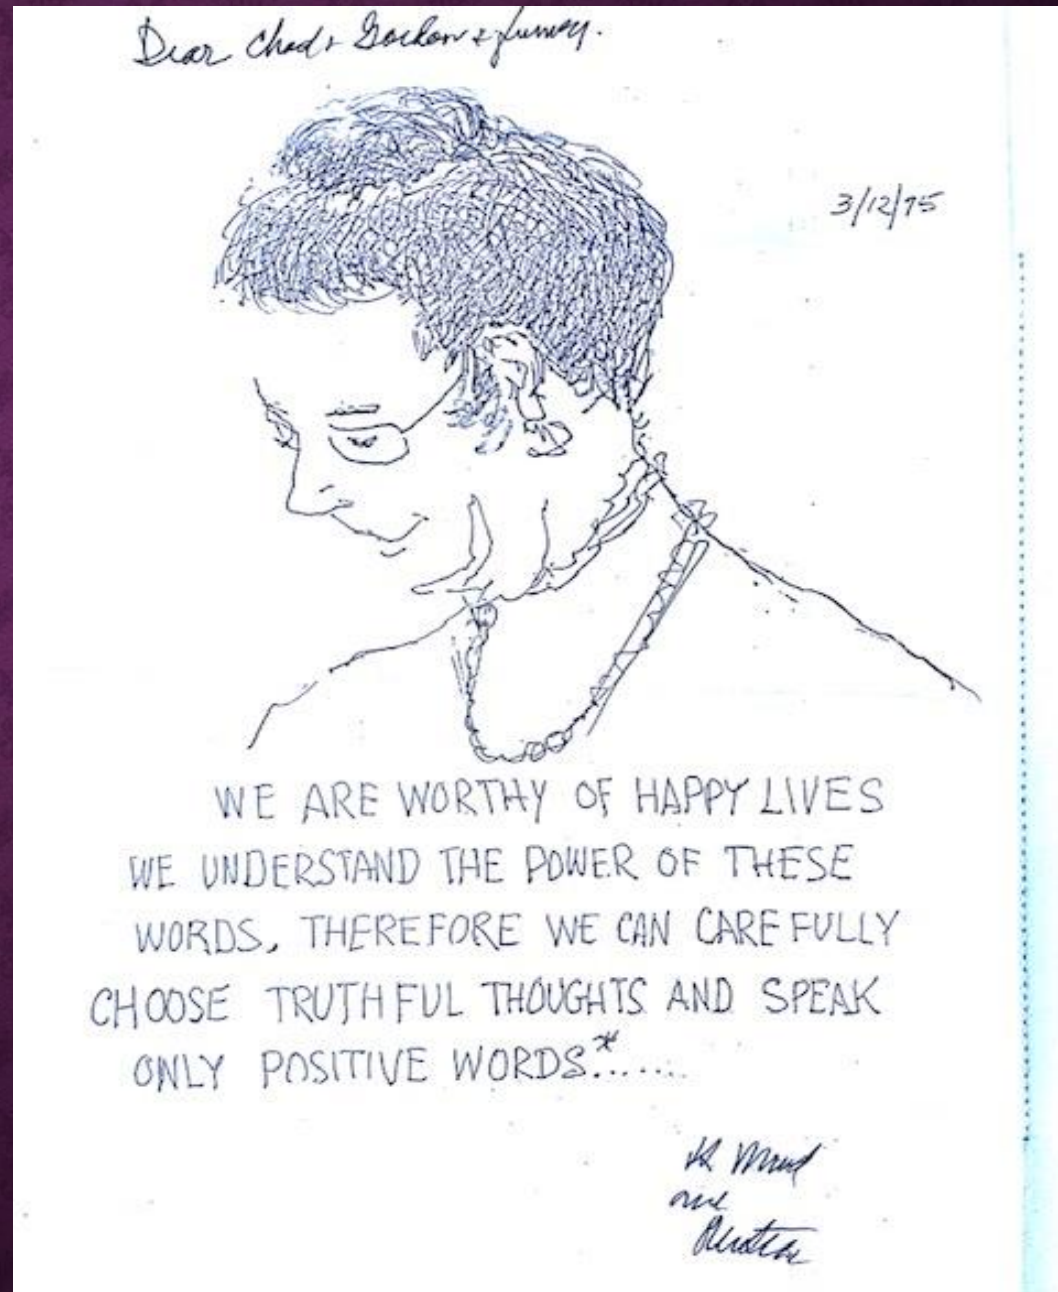 Dear Chad & Gordon &
3/12/75
WE ARE WORTHY OF HAPPY LIVES
WE UNDERSTAND THE POWER OF THESE
WORDS, THEREFORE WE CAN CAREFULLY
CHOOSE TRUTHFUL THOUGHTS AND SPEAK
ONLY POSITIVE WORDS*......